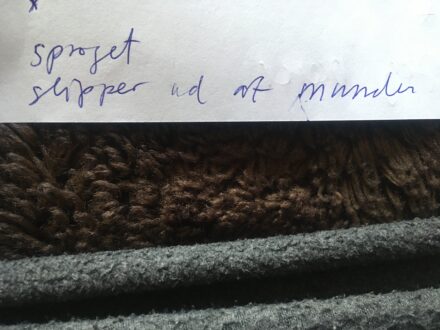 *
sproget
slipper ud af munden